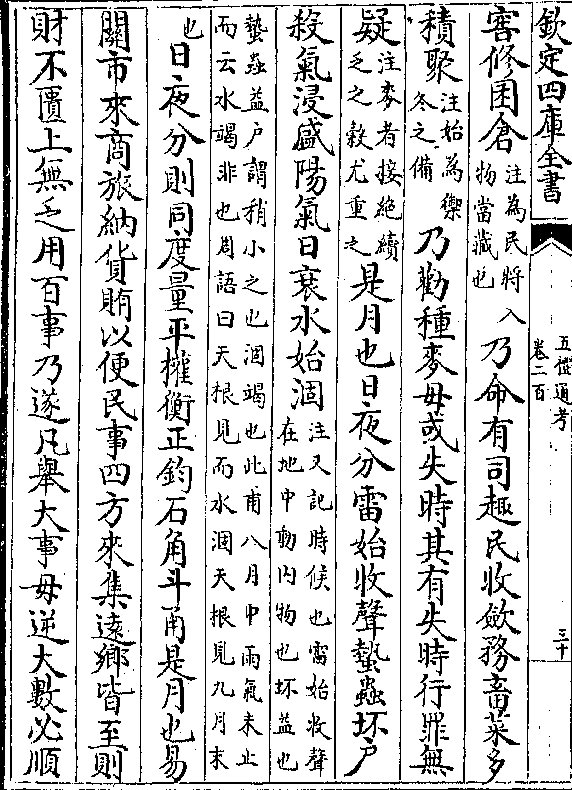 欽定四庫全書
五禮通考
卷二百
三十
窖修囷倉注為民將入物當藏也乃命有司趣民收斂務畜菜多
積聚注始為禦冬之備乃勸種麥毋或失時其有失時行罪無
疑注麥者接絶續乏之穀尤重之是月也日夜分雷始收聲蟄蟲坏户
殺氣浸盛陽氣日衰水始涸注又記時候也雷始收聲在地中動内物也坏益也
蟄蟲益户謂稍小之也涸竭也此甫八月中雨氣未止而云水竭非也周語曰天根見而水涸天根見九月末
也日夜分則同度量平權衡正鈞石角斗甬是月也易
關市來商旅納貨賄以便民事四方來集遠鄉皆至則
財不匱上無乏用百事乃遂凡舉大事毋逆大數必順